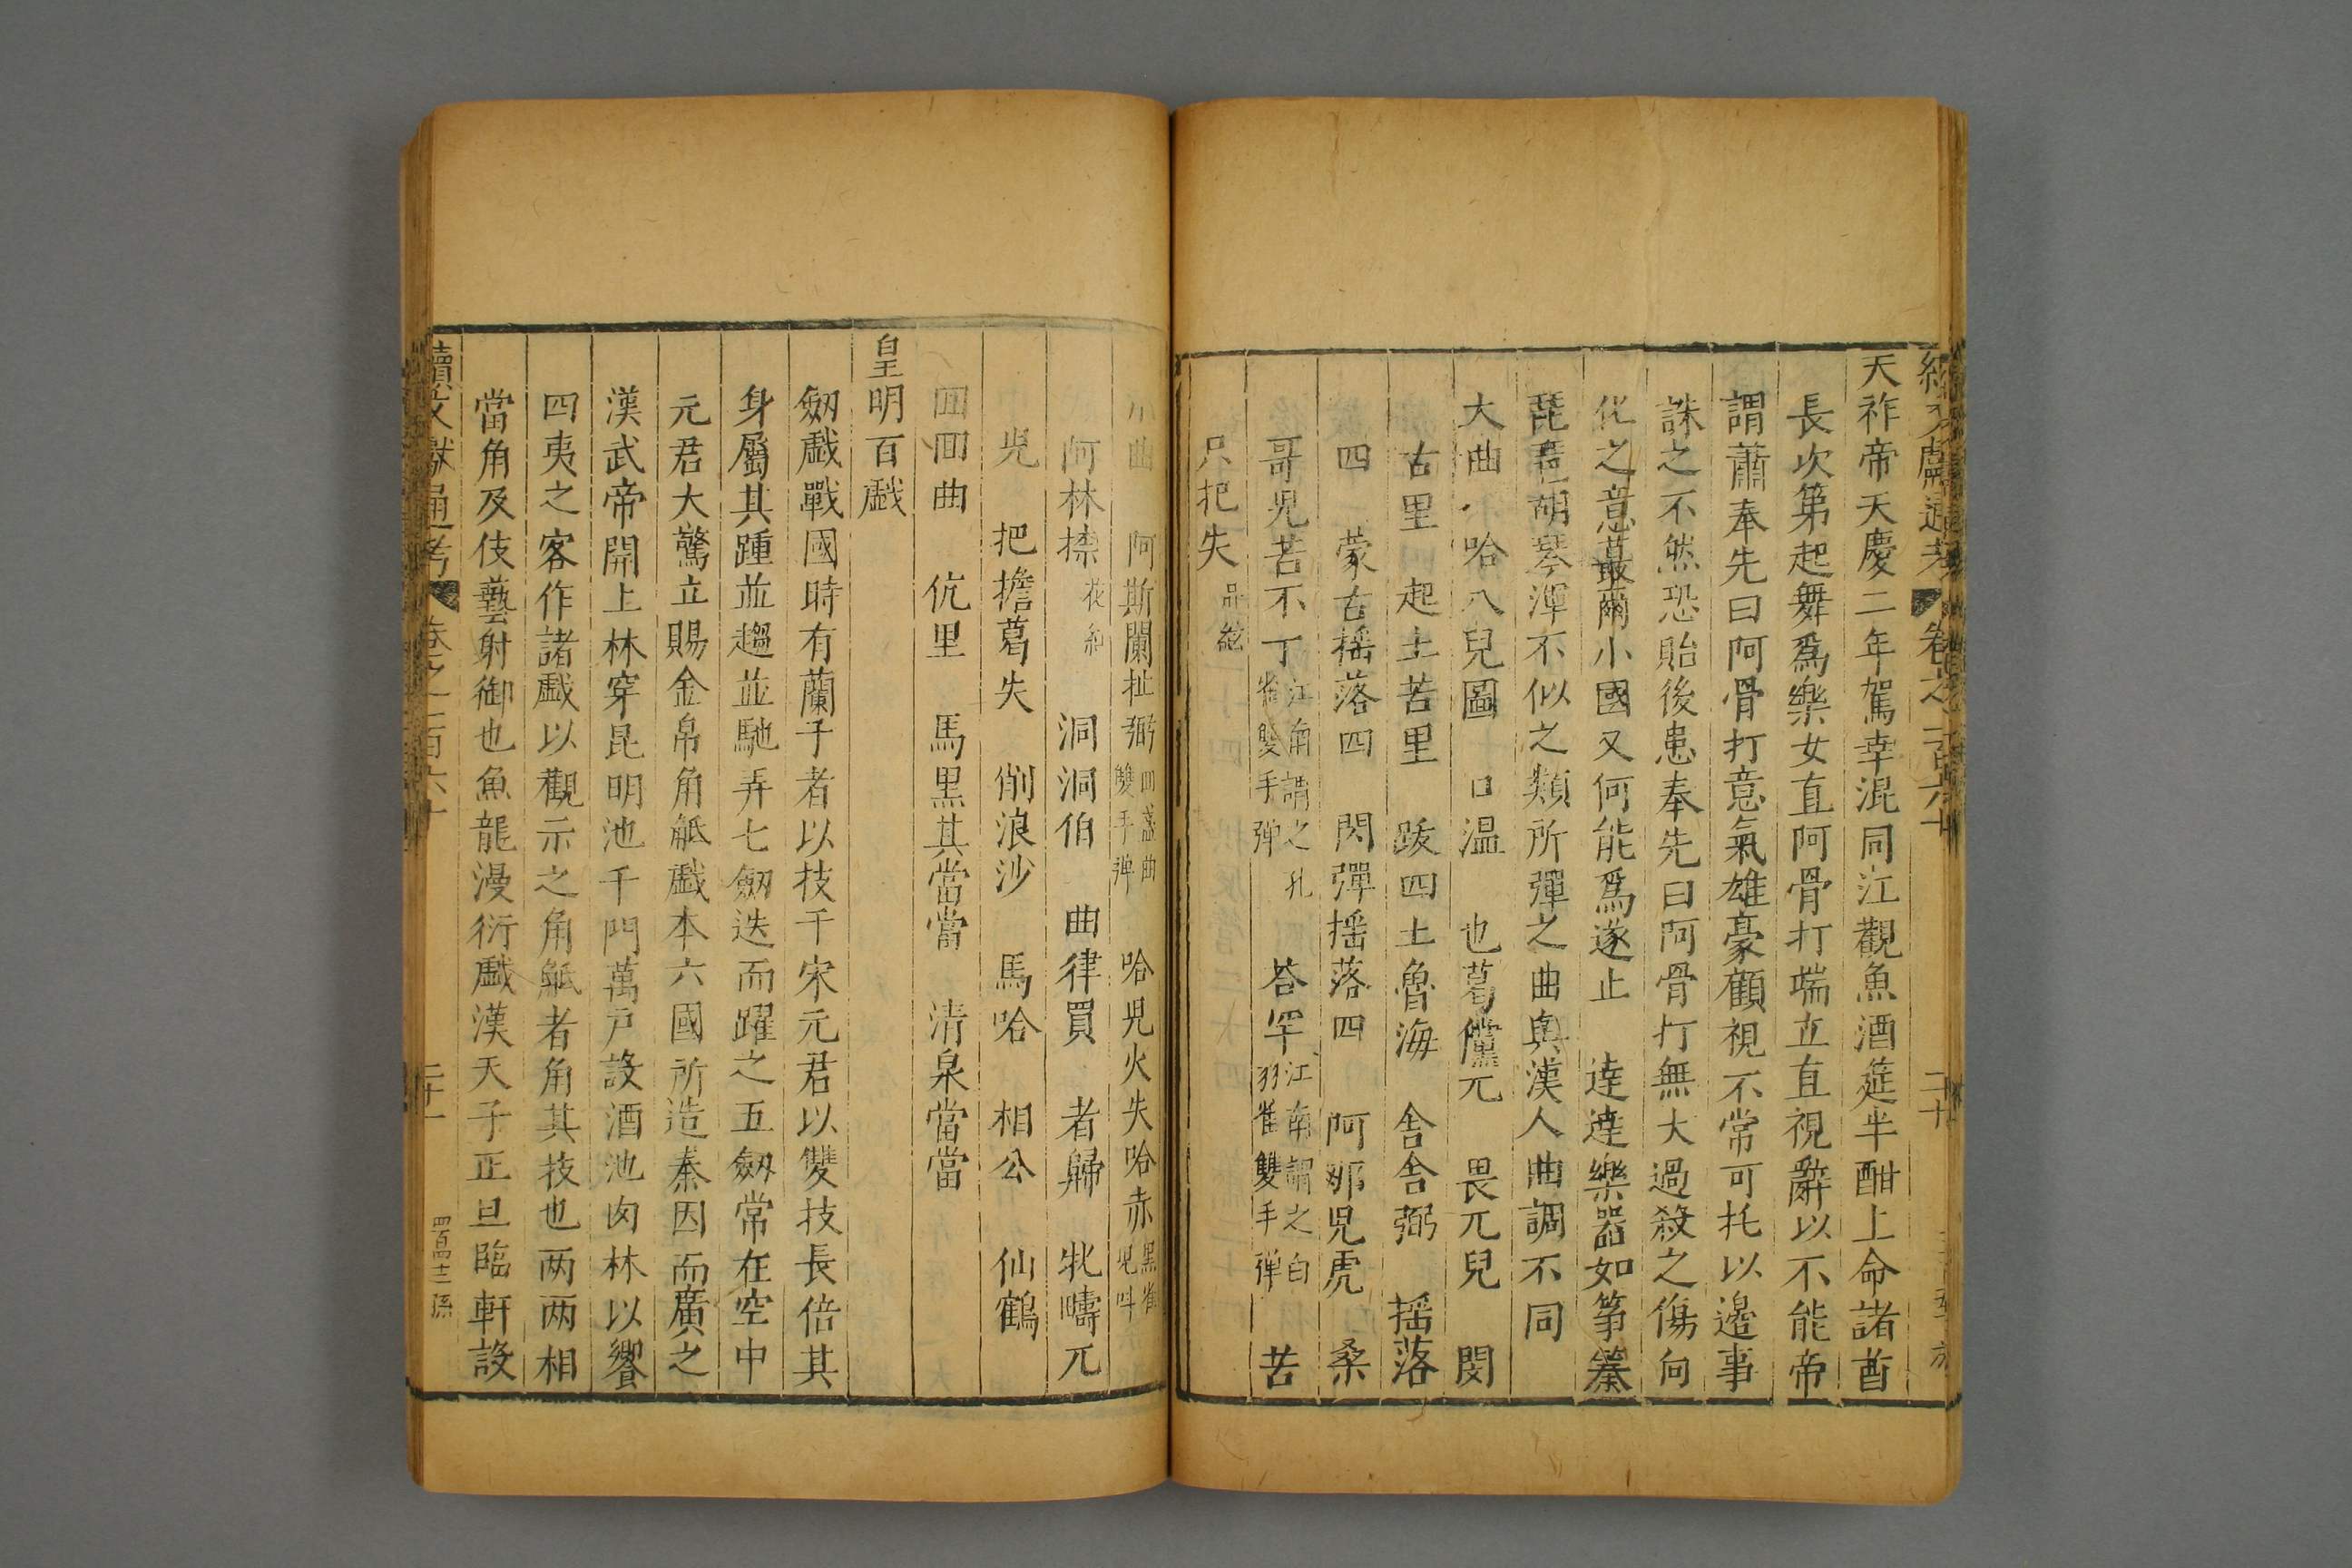 續文獻通考 卷之一百六十 二十
天祚帝天慶二年駕幸混同江觀魚酒筵半酣上命諸酋
長次第起舞爲樂女直阿骨打端立直視辭以不能帝
謂蕭奉先曰阿骨打意氣雄豪顧視不常可托以邉事
誅之不然恐貽後患奉先曰阿骨打無大過殺之傷向
化之意蕞爾小國又何能爲遂止 逹逹樂器如箏𥴈
琵琶胡琴渾不似之類所彈之曲與漢人曲調不同
大曲 哈八兒圖 口温 也葛儻兀 畏兀兒 閔
古里 起土苦里 跋四土魯海 舎舎弼 揺落
四 蒙古揺落四 閃彈揺落四 阿耶兒虎 桑
哥兒苦不丁 江南謂之孔
雀雙手彈 荅罕 江南謂之白
翎雀雙手彈 苦
只把失 品絃
小曲 阿斯闌扯弼 囬盞曲
雙手彈 哈兒火失哈赤 黑雀
兒呌
阿林捺 花紅 洞洞伯 曲律買 者歸 牝疇兀
兒 把擔葛失 削浪沙 馬哈 相公 仙鶴
囬囬曲 伉里 馬黑某當當 清泉當當
皇明百戱
劔戱戰國時有蘭子者以技干宋元君以雙技長倍其
身屬其踵並趨並馳弄七劔迭而躍之五劔常在空中
元君大驚立賜金帛角觝戱本六國所造秦因而廣之
漢武帝開上林穿昆明池千門萬戸設酒池肉林以饗
四夷之客作諸戱以觀示之角觝者角其技也两两相
當角及伎藝射御也魚龍漫衍戱漢天子正旦臨軒設
續文獻通考 卷之一百六十 二十一